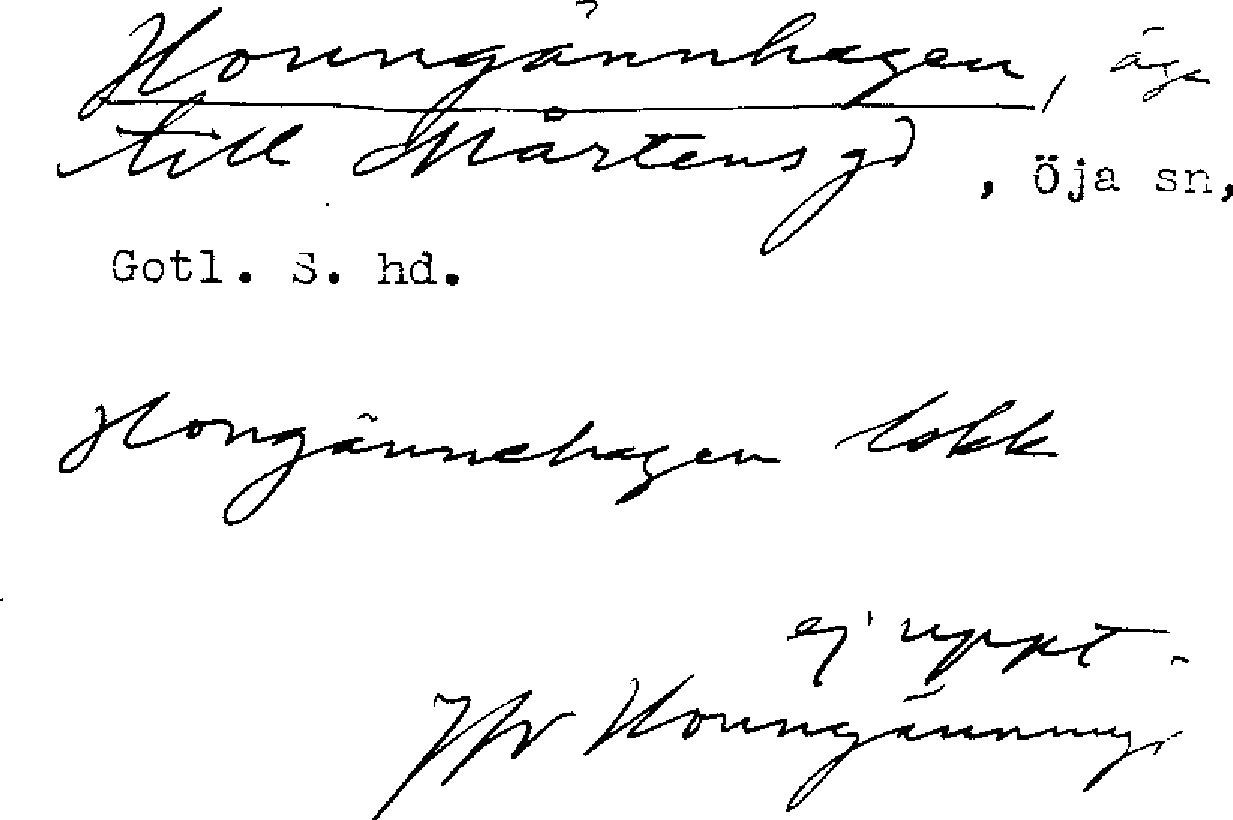 Hounngännhagen, äga
till Mårtens gd, Öja sn,
Gotl. S. hd.
Hongännehagen lokk
ej uppt.
Jfr